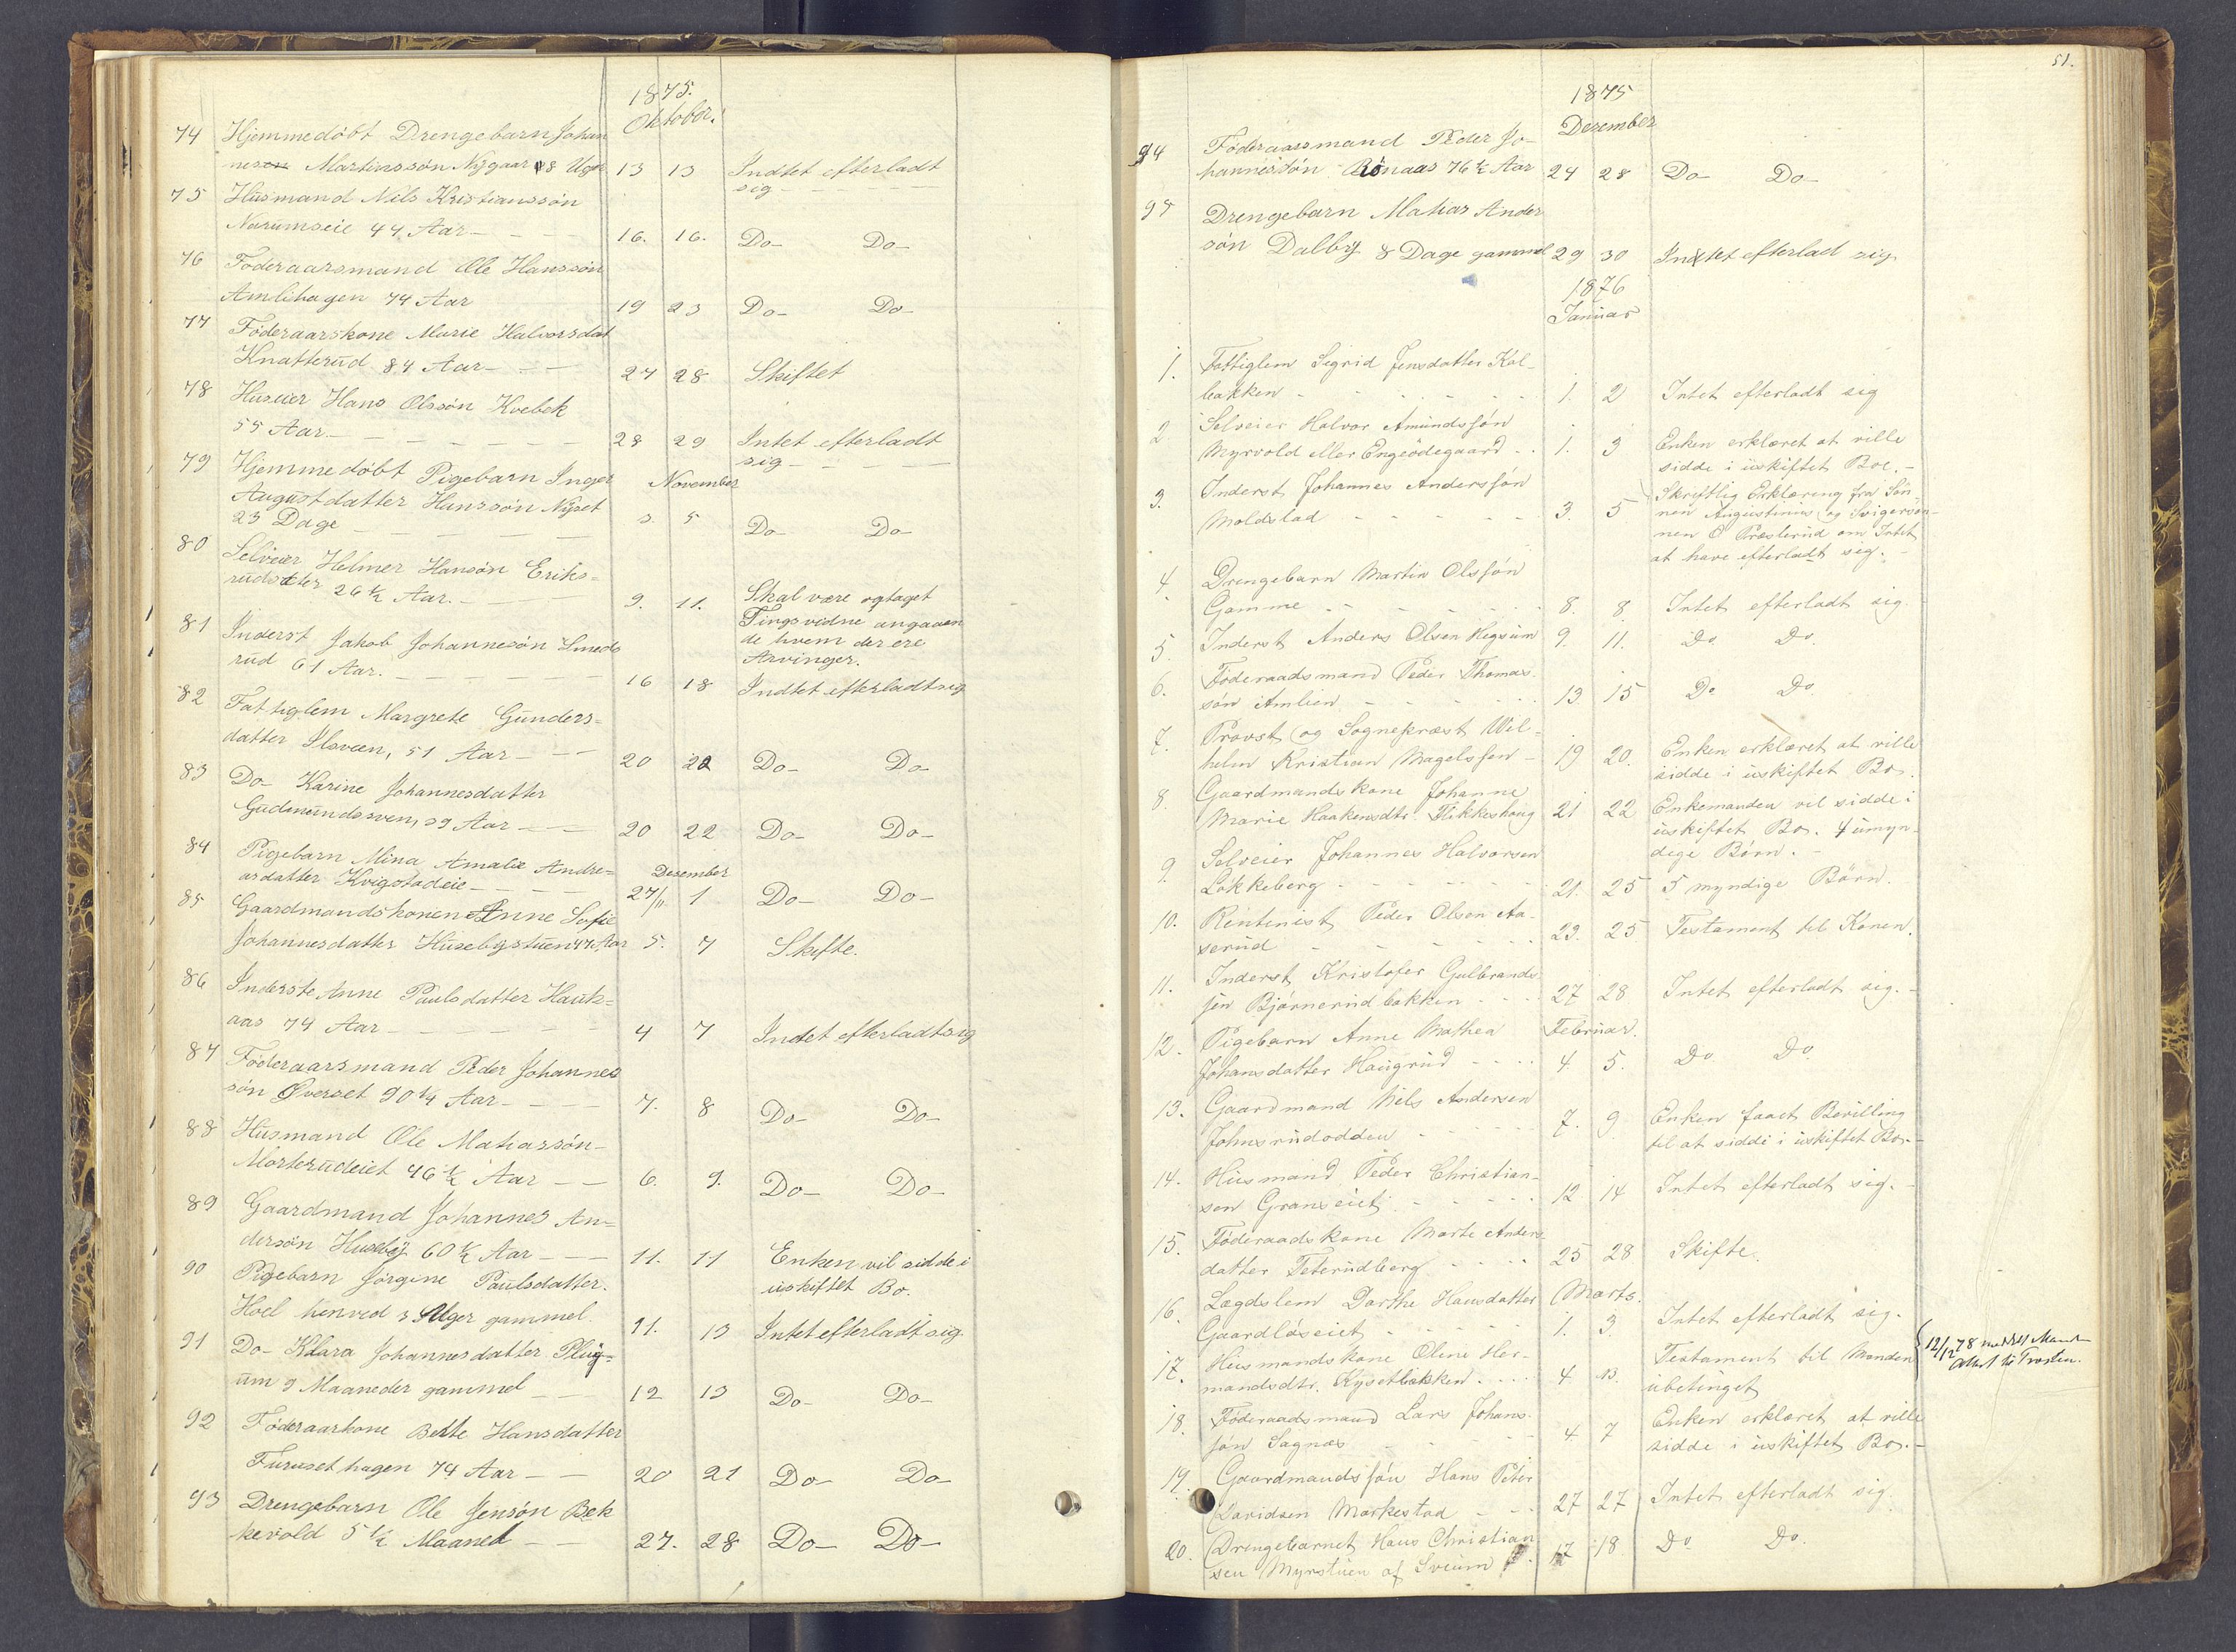 1875.
Oktober.
74 Hjemmedöbt Drengebarn Johan
nesen Martinssön Nygaar 8 Uger 13 13 Indtet efterladt
sig
75 Husmand Nils Kristianssön
Narumseie 44 Aar 16. 16. Do Do
76 Föderaarsmand Ole Hanssön
Amlihagen 74 Aar 19 23 Do Do
77 Föderaarskone Marie Halvorsdat
Knatterud 84 Aar 27 28 Skiftet
78 Huseier Hans Olssön Kvebek
55 Aar 28 29 Intet efterladt
sig
79 Hjemmedöbt Pigebarn Inger November
Augustdatter Hanssön Nyset
23 Dage 3 5 Do Do
80 Selveier Helmer Hansön Eriks=
rudsæter 26 1/2 Aar. 9. 11. Skal være optaget
Tingsvidne angaaen
de hvem der ere
Arvinger.
81 Inderst Jakob Johannesön Smeds
rud 61 Aar. 16 18 Indtet efterladt sig
82 Fattiglem Margrete Gunders=
datter Sloveen, 51 Aar 20 22 Do Do
83 Do Karine Johannesdatter
Gudmundsven, 39 Aar 20 22 Do Do
84 Pigebarn Mina Amalie Andre= Desember
asdatter Kvigstadeie 27/11 1 Do Do
85 Gaardmandskonen Anne Sofie
Johannesdatter Husebystuen 47 Aar 5. 7 Skifte.
86 Inderste Anne Paulsdatter Hauk=
aas 74 Aar 4 7 Indtet efterladt sig
87 Föderaarsmand Peder Johannes
sön Överset 90 1/4 Aar 7. 8 Do Do
88 Husmand Ole Mathiassön
Morterudeiet 46 1/2 Aar 6. 9. Do Do
89 Gaardmand Johannes An=
dersön Huseby 60 1/2 Aar 11. 11 Enken vil sidde i
uskiftet Bo.
90 Pigebarn Jörgine Paulsdatter.
Hoel henved 3 Uger gammel. 11. 13 Intet efterladt sig
91 Do Klara Johannesdatter Plug=
um 9 Maaneder gammel 12 13 Do Do
92 Föderaarkone Berte Hansdatter
Furusethagen 74 Aar 20 21 Do Do
93 Drengebarn Ole Jensön Bek
kevold 5 1/2 Maaned 27. 28 Do Do
51.
1875
Dezember
94 Föderaarsmand Peder Jo-
hannesön Rönaas 76 1/2 Aar 24 28 Do Do
95 Drengebarn Matias Ander
sön Dalby 8 Dage gammel 29 30 Indtet efterlad sig
1876
Januar
1. Fattiglem Sigrid Jensdatter Kol-
bakken 1. 2 Intet efterladt sig
2 Selveier Halvor Amundssön
Myrvold eller Engeödegaard 1. 3 Enken erklæret at ville
sidde i uskiftet Boe.
3. Inderst Johannes Anderssön
Moldstad 3. 5 Skriftlig Erklæring fra Sön
nen Augustinus og Svigersön-
nen O Præsterud om Intet
at have efterladt sig.
4. Drengebarn Martin Olssön
Gamme 8. 8. Intet efterladt sig
5. Inderst Anders Olsen Hegsum 9. 11. Do Do.
6. Föderaadsmand Peder Thomas
sön Amlien 13 15 Do Do.
7. Provst og Sognepræst Wil-
helm Kristian Magelssen 19 20. Enken erklæret at ville
sidde i uskiftet Bo.
8. Gaardmandskone Johanne
Marie Haakensdtr. Flikkeshaug 21 22 Enkemanden vil sidde i
uskiftet Bo. 4 umyn-
dige Börn.
9. Selveier Johannes Halvorsen
Lökkeberg 21. 25 5 myndige Börn.
10. Rentenist Peder Olsen Aa-
serud 23. 25 Testament til Konen.
11. Inderst Kristofer Gulbrands
sen Bjørnerudbakken 27 28 Intet efterladt sig.
12. Pigebarn Anne Mathea Februar.
Johansdatter Haugrud 4. 5. Do Do.
13. Gaardmand Nils Andersen
Johnsrudodden 7. 9. Enken faaet Bevilling
til at sidde i uskiftet Bo.
14. Husmand Peder Christian-
sen Granseiet 12 14 Intet efterladt sig.
15. Föderaadskone Marte Anders
datter Teterudberg 25 28 Skifte.
16. Lægdslem Dorthe Hansdatter Marts.
Gaardløseiet 1. 3. Intet efterladt sig.
17. Husmandskone Oline Her-
mandsdtr. Rysetbakken 4 13. Testament til Manden
ubetinget
12/12 78 meddelt Manden
Attest til Trosten.
18. Föderaadsmand Lars Johans
sön Sagnæs 4. 7 Enken erklæret at ville
sidde i uskiftet Bo.
19. Gaardmandssön Hans Peter
Davidsen Markestad 27 27 Intet efterladt sig.
20. Drengebarnet Hans Christian
sen Myrstuen af Sveum 17 18 Do Do.